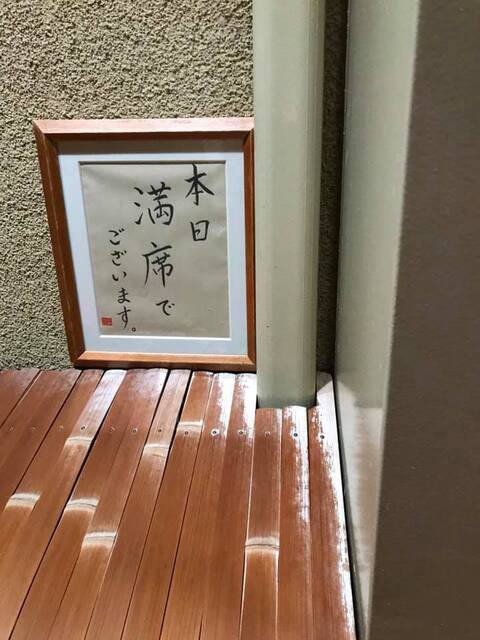 本日
満席で
ございます。